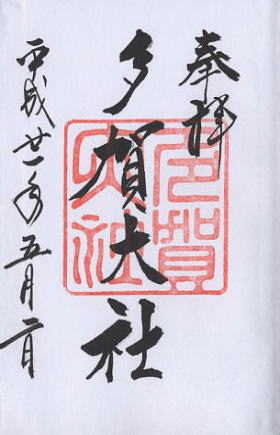 奉拝
多賀大社
多賀大社
平成廿一年五月二日